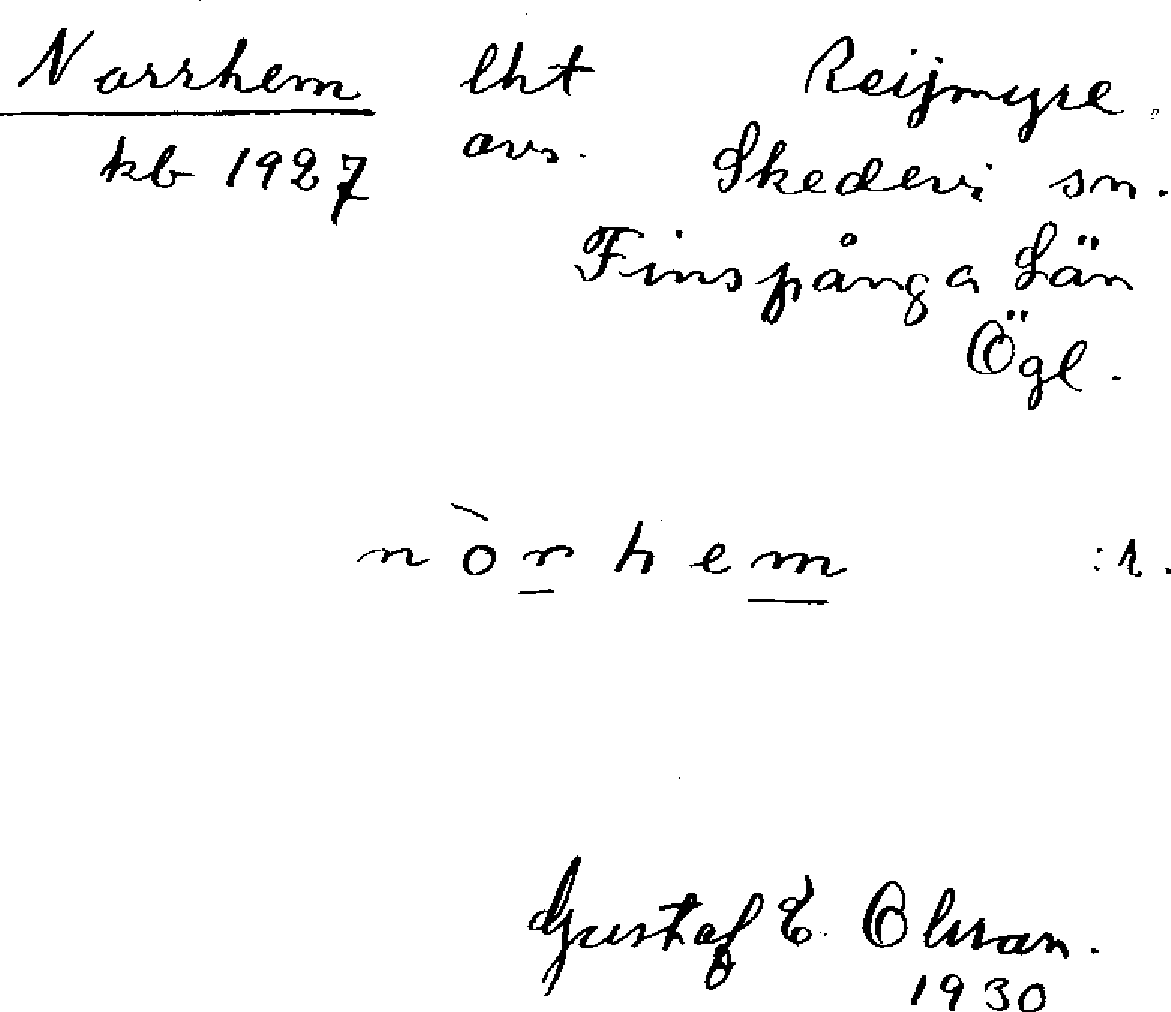 Norrhem lht Reijmyre.
kb 1927 avs. Skedevi sn.
Finspånga Län
Ögl.
nòrhem :1.
Gustaf E. Olsson.
1930